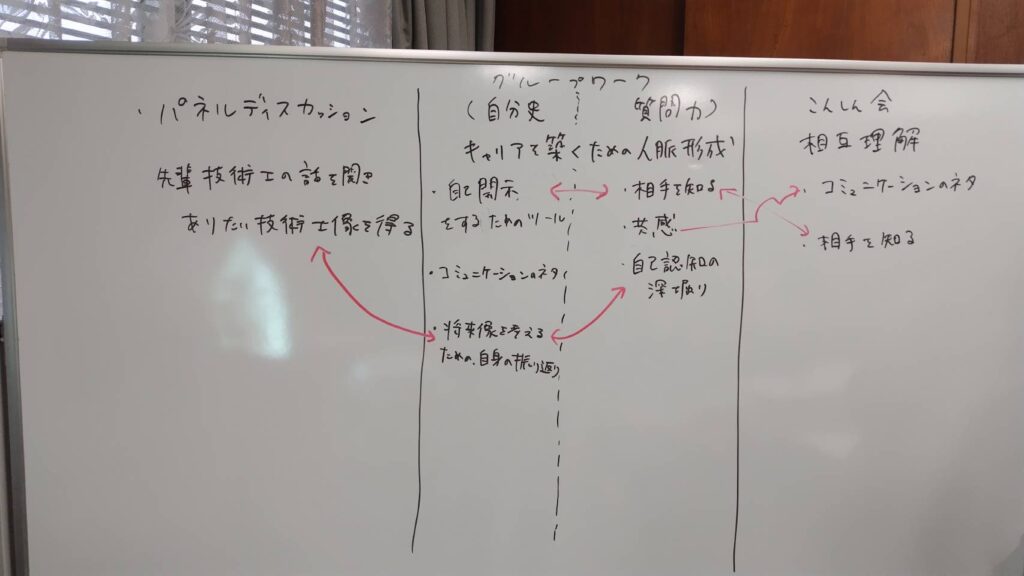 ・パネルディスカッション
先輩技術士の話を聞き
ありたい技術士像を得る
グループワーク
(自分史 質問力)
キャリアを築くための人脈形成
・自己開示
をするためのツール
・コミュニケーションのネタ
・将来像を考える
ための、自身の振り返り
・相手を知る
・共感
・自己認知の
深堀り
こんしん会
相互理解
・コミュニケーションのネタ
・相手を知る